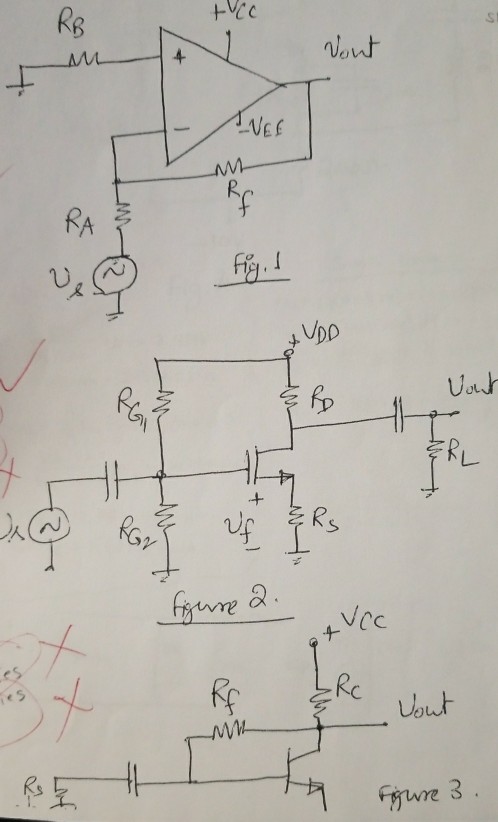 RB
+VCC
Vout
+
−
−VEE
Rf
RA
Vs
Fig. 1
+VDD
RG1
RD
Vout
RL
RG2
+
Vf
−
RS
Figure 2.
+VCC
RC
Rf
Vout
Rs
Figure 3.